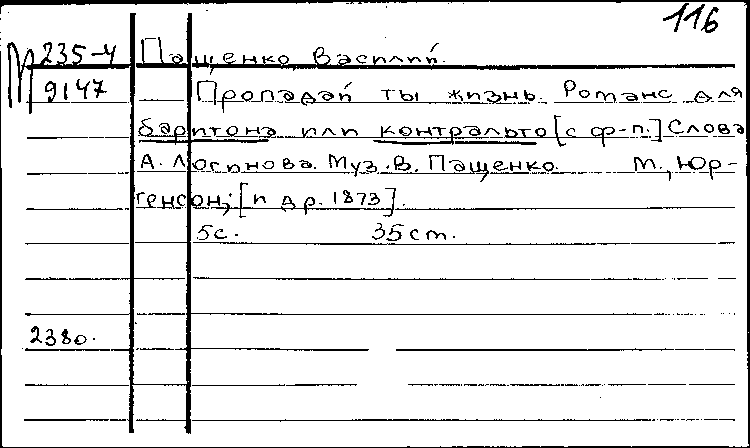 116
М 235-4 Пащенко Василий.
9147 Пропадай ты жизнь. Романс для
баритона или контральто [с ф-п.] Слова
А. Логинова. Муз. В. Пащенко. М., Юр-
генсон, [п др. 1873].
5с. 35 cm.
2380.